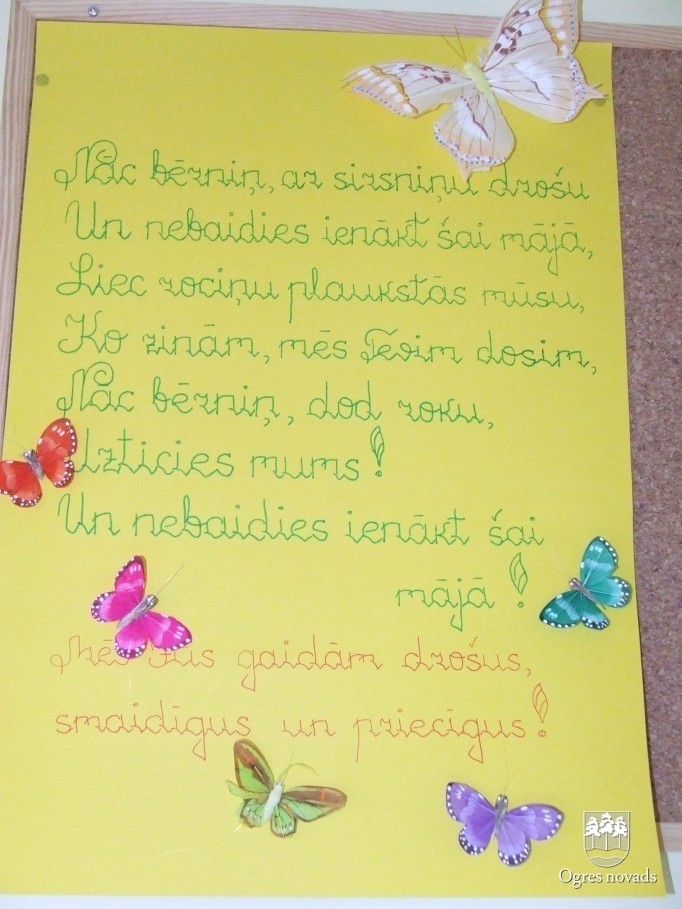 Nāc bērniņ, ar sirsniņu drošu
Un nebaidies ienākt šai mājā,
Liec rociņu plaukstās mūsu,
Ko zinām, mēs Tevim dosim,
Nāc bērniņ, dod roku,
Uzticies mums!
Un nebaidies ienākt šai
mājā!
Mēs Jūs gaidām drošus,
smaidīgus un priecīgus!
Ogres novads